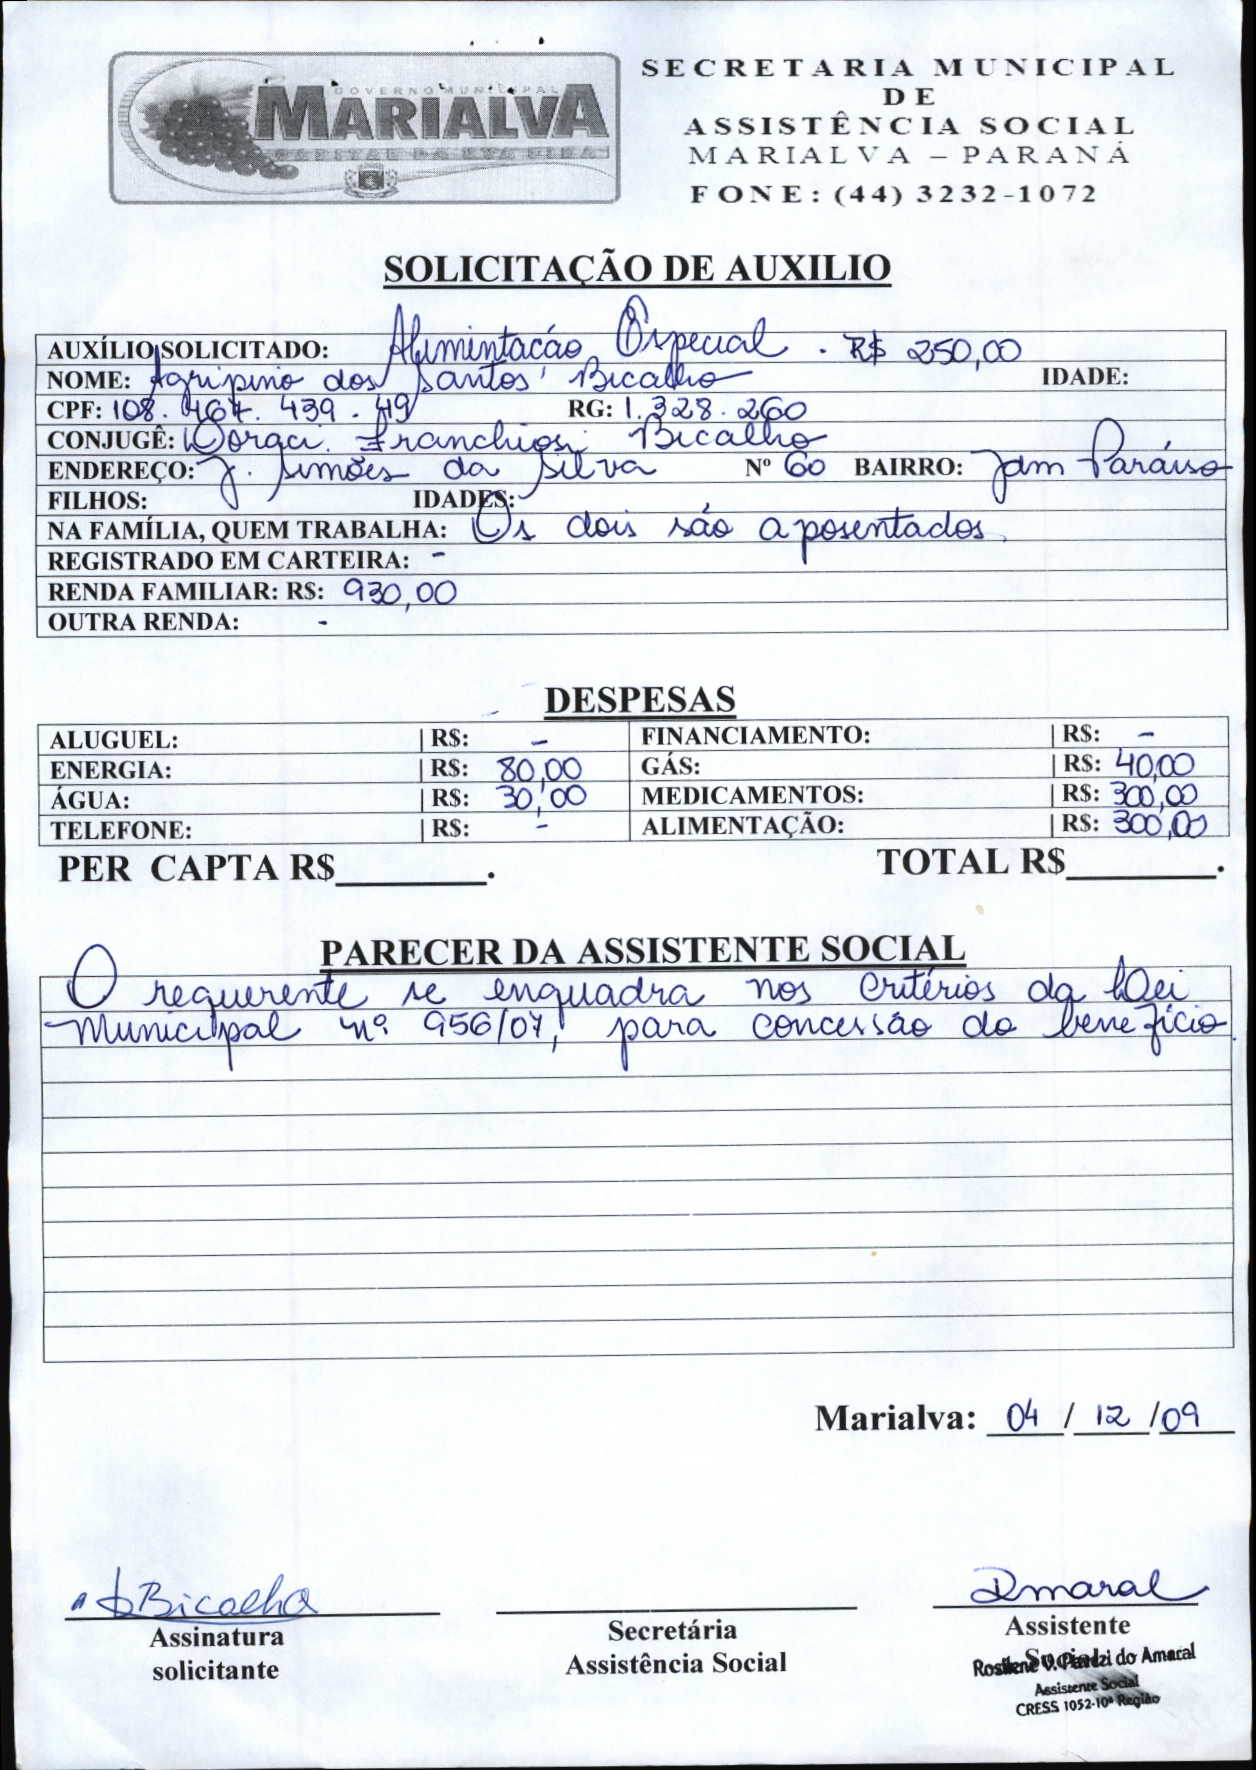 GOVERNO MUNICIPAL
MARIALVA
CAPITAL DA UVA FINA
SECRETARIA MUNICIPAL
DE
ASSISTÊNCIA SOCIAL
MARIALVA – PARANÁ
FONE: (44) 3232-1072
SOLICITAÇÃO DE AUXILIO
AUXÍLIO SOLICITADO: Alimentacáo Especial. R$ 250,00
NOME: Agripino dos Santos Bicalho IDADE:
CPF: 108.467.439.49 RG: 1.328.260
CONJUGÊ: Doraci Franchiosi Bicalho
ENDEREÇO: J. Simões da Silva Nº 60 BAIRRO: Jdm Paráiso
FILHOS: IDADES:
NA FAMÍLIA, QUEM TRABALHA: Os dois são aposentados.
REGISTRADO EM CARTEIRA: -
RENDA FAMILIAR: R$: 930,00
OUTRA RENDA: -
DESPESAS
ALUGUEL: | R$: - FINANCIAMENTO: | R$: -
ENERGIA: | R$: 80,00 GÁS: | R$: 40,00
ÁGUA: | R$: 30,00 MEDICAMENTOS: | R$: 300,00
TELEFONE: | R$: - ALIMENTAÇÃO: | R$: 300,00
PER CAPTA R$________. TOTAL R$________.
PARECER DA ASSISTENTE SOCIAL
O requerente se enquadra nos critérios da Lei
Municipal nº 956/07, para concessão do benefício.
Marialva: 04 / 12 /09
Bicalho Amaral
Assinatura Secretária Assistente
solicitante Assistência Social Social
Rosilene V. Pavezi do Amaral
Assistente Social
CRESS 1052-10ª Região